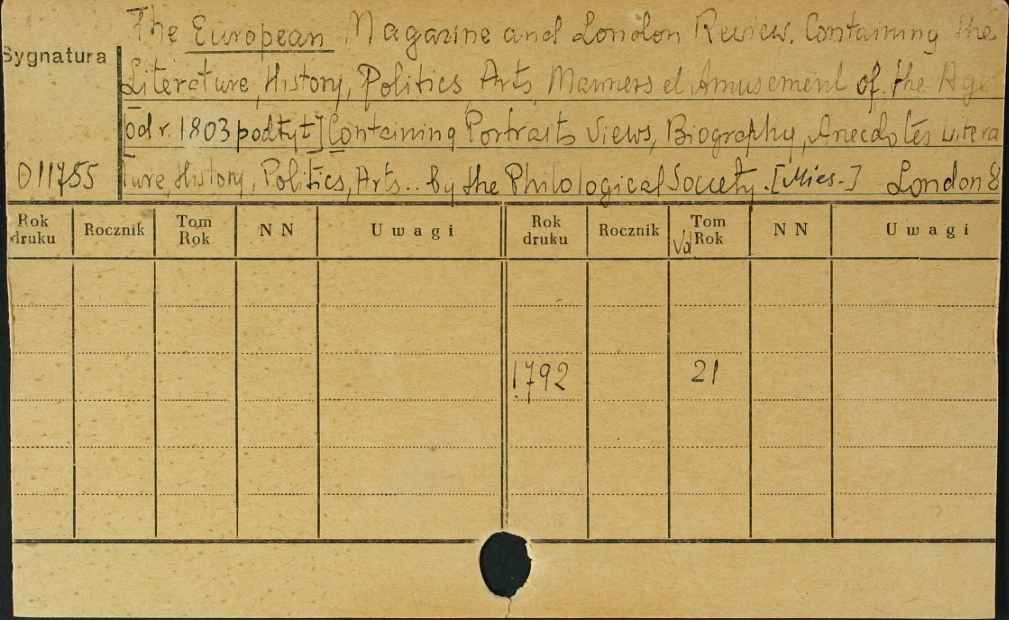 The European Magazine and London Review. Containing the
Sygnatura
Literature, History, Politics, Arts, Manners et Amusement of the Age
[od r. 1803 podtyt] Containing Portraits Views, Biography, Anecdotes Litera
011755
ture, History, Politics, Arts.. by the Philological Society. [Mies.] London 8
Rok druku Rocznik Tom Rok N N Uwagi Rok druku Rocznik Vol Tom Rok N N Uwagi
1792 21